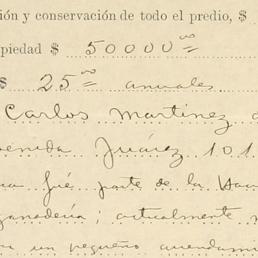 ión y conservación de todo el predio, $
piedad $ 50000.00=
$ 25.00 anuales
Carlos Martinez
enida Juárez 101
fué parte de la Hac
ganadería; actualmente
un pequeño arrendami